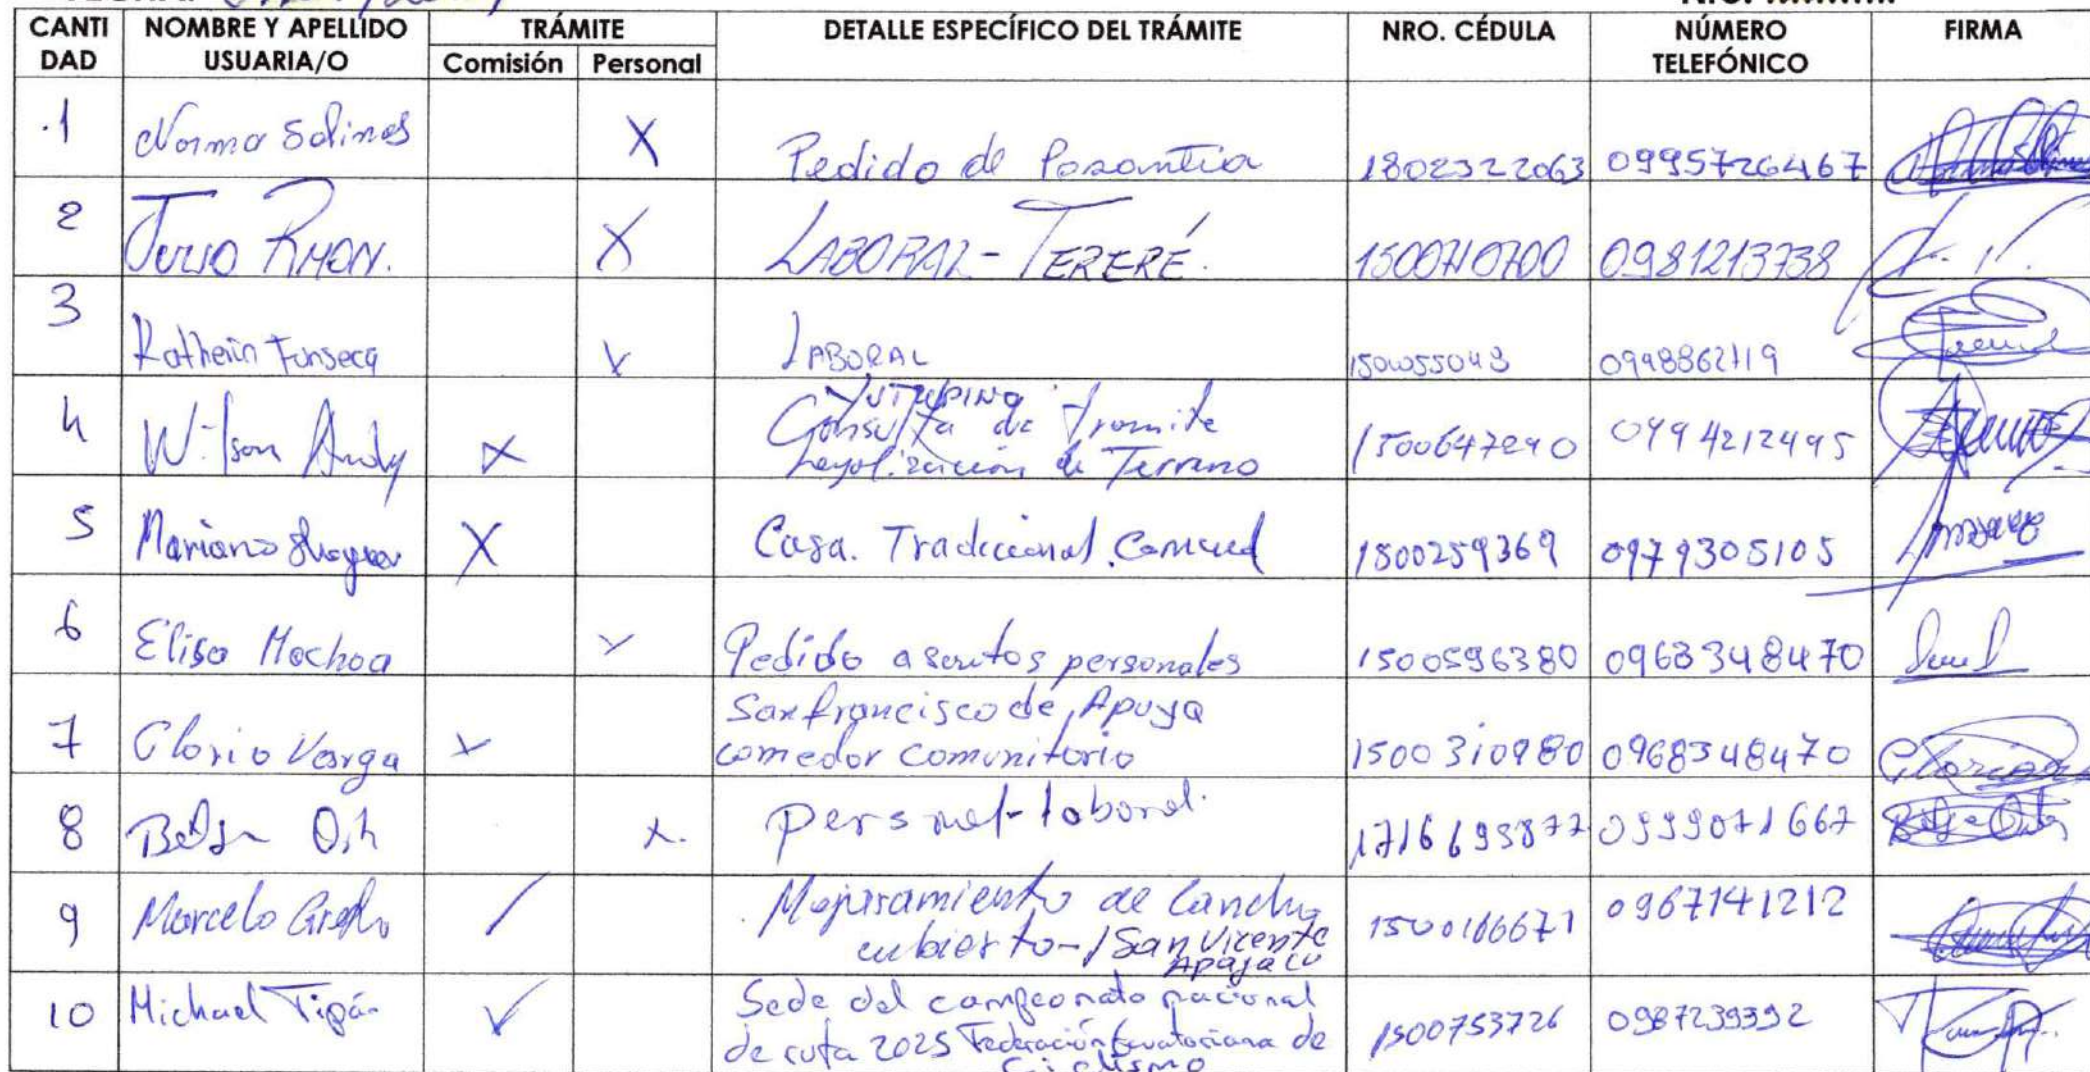 CANTI DAD NOMBRE Y APELLIDO USUARIA/O TRÁMITE Comisión Personal DETALLE ESPECÍFICO DEL TRÁMITE NRO. CÉDULA NÚMERO TELEFÓNICO FIRMA
.1 Norma Salinas X Pedido de Pasantia 1802322063 0995726467
2 X LABORAL-TERERÉ. 0981213738
3 Katherin Fonseca X LABORAL 0998862119
4 Wilson Andy X YUTZUPINO
Consulta de Tramite
Legalización de Terreno 1500647290 0994212495
5 Mariano X Casa. Tradicional 1500259369 0979305105
6 Elisa Mochoa X Pedido asuntos personales 1500596380 0963348470
7 Gloria Varga X San francisco de Apuya
comedor comunitario 1500310980 0968348470
8 X. personal-laboral. 1716693877 0999071667
9 Marcelo / Mejoramiento de Cancha
cubierto-/San Vicente
Apayacu 1500166671 0967141212
10 Michael Tipán ✓ Sede del campeonato nacional
de ruta 2025 Federación Ecuatoriana de
Ciclismo 1500753726 0987239392